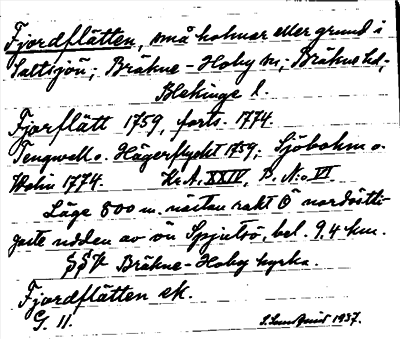 Fjordflätten, små holmar eller grund i
Saltsjön; Bräkne-Hoby sn; Bräkne hd,
Blekinge l.
Fjorflätt 1759, forts. 1774.
Tengwell o. Hägerflycht 1759; Sjöbohm o.
Wolin 1774. Kr. A. XXIV, B. N:o VI
Läge 800 m. nästan rakt Ö nordöstli-
gaste udden av ön Spjutsö, bel. 9,4 km.
Bräkne-Hoby kyrka.
Fjordflätten ek.
G. 11. 1937.